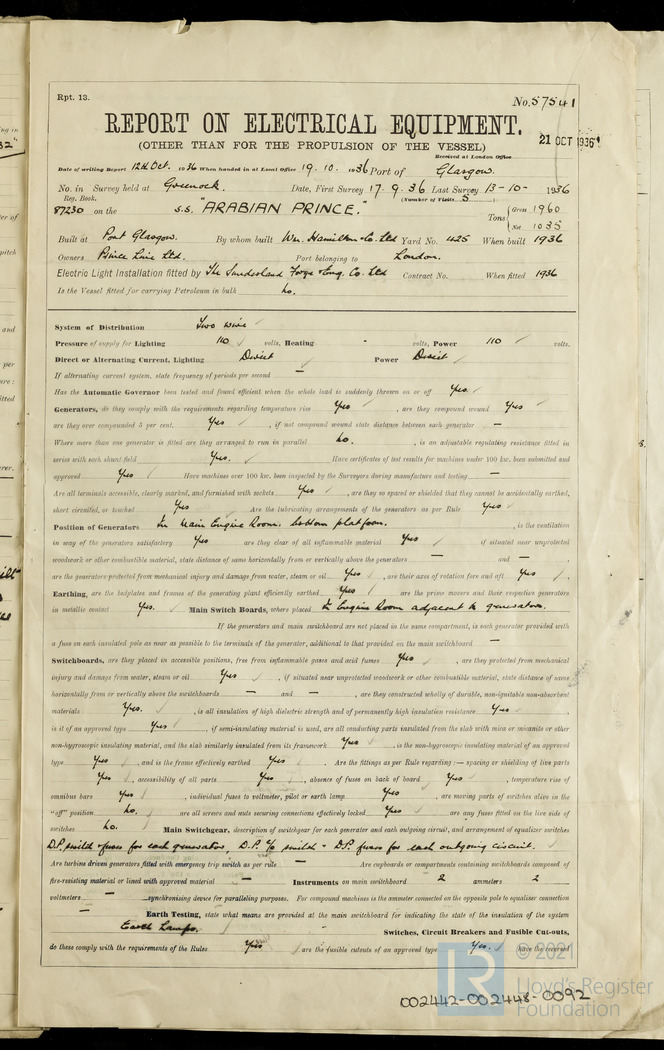 Rpt. 13.
No. 57541
REPORT ON ELECTRICAL EQUIPMENT.
(OTHER THAN FOR THE PROPULSION OF THE VESSEL)
21 OCT 1936
Received at London Office
Date of writing Report 12th Oct. 1936 When handed in at Local Office 19. 10. 1936 Port of Glasgow.
No. in Survey held at Greenock. Date, First Survey 17. 9. 36 Last Survey 13-10- 1936
Reg. Book. (Number of Visits 5 )
87230 on the S.S. "ARABIAN PRINCE." Tons { Gross 1960
Net 1035
Built at Port Glasgow. By whom built Wm. Hamilton & Co. Ltd Yard No. 425 When built 1936
Owners Prince Line Ltd. Port belonging to London.
Electric Light Installation fitted by The Sunderland Forge & Eng. Co. Ltd Contract No. When fitted 1936
Is the Vessel fitted for carrying Petroleum in bulk No.
System of Distribution Two wire
Pressure of supply for Lighting 110 volts, Heating - volts, Power 110 volts.
Direct or Alternating Current, Lighting Direct Power Direct
If alternating current system, state frequency of periods per second —
Has the Automatic Governor been tested and found efficient when the whole load is suddenly thrown on or off Yes.
Generators, do they comply with the requirements regarding temperature rise Yes , are they compound wound Yes
are they over compounded 5 per cent. Yes , if not compound wound state distance between each generator —
Where more than one generator is fitted are they arranged to run in parallel No. , is an adjustable regulating resistance fitted in
series with each shunt field Yes. Have certificates of test results for machines under 100 kw. been submitted and
approved Yes Have machines over 100 kw. been inspected by the Surveyors during manufacture and testing —
Are all terminals accessible, clearly marked, and furnished with sockets Yes , are they so spaced or shielded that they cannot be accidentally earthed,
short circuited, or touched Yes Are the lubricating arrangements of the generators as per Rule Yes
Position of Generators In Main Engine Room. bottom platform. , is the ventilation
in way of the generators satisfactory Yes are they clear of all inflammable material Yes if situated near unprotected
woodwork or other combustible material, state distance of same horizontally from or vertically above the generators — and —,
are the generators protected from mechanical injury and damage from water, steam or oil Yes , are their axes of rotation fore and aft Yes .
Earthing, are the bedplates and frames of the generating plant efficiently earthed Yes are the prime movers and their respective generators
in metallic contact Yes. Main Switch Boards, where placed In Engine Room adjacent to generators.
If the generators and main switchboard are not placed in the same compartment, is each generator provided with
a fuse on each insulated pole as near as possible to the terminals of the generator, additional to that provided on the main switchboard —
Switchboards, are they placed in accessible positions, free from inflammable gases and acid fumes Yes , are they protected from mechanical
injury and damage from water, steam or oil Yes , if situated near unprotected woodwork or other combustible material, state distance of same
horizontally from or vertically above the switchboards — and — , are they constructed wholly of durable, non-ignitable non-absorbent
materials Yes. , is all insulation of high dielectric strength and of permanently high insulation resistance Yes ,
is it of an approved type Yes , if semi-insulating material is used, are all conducting parts insulated from the slab with mica or micanite or other
non-hygroscopic insulating material, and the slab similarly insulated from its framework Yes , is the non-hygroscopic insulating material of an approved
type Yes , and is the frame effectively earthed Yes . Are the fittings as per Rule regarding :— spacing or shielding of live parts
Yes , accessibility of all parts Yes , absence of fuses on back of board Yes , temperature rise of
omnibus bars Yes , individual fuses to voltmeter, pilot or earth lamp Yes , are moving parts of switches alive in the
"off" position No. are all screws and nuts securing connections effectively locked Yes are any fuses fitted on the live side of
switches No. Main Switchgear, description of switchgear for each generator and each outgoing circuit, and arrangement of equalizer switches
D.P. switch & fuses for each generator, D.P. c/o switch & D.P. fuses for each outgoing circuit.
Are turbine driven generators fitted with emergency trip switch as per rule — Are cupboards or compartments containing switchboards composed of
fire-resisting material or lined with approved material — Instruments on main switchboard 2 ammeters 2
voltmeters — synchronising device for paralleling purposes. For compound machines is the ammeter connected on the opposite pole to equaliser connection
— Earth Testing, state what means are provided at the main switchboard for indicating the state of the insulation of the system
Earth Lamps. Switches, Circuit Breakers and Fusible Cut-outs,
do these comply with the requirements of the Rules Yes are the fusible cutouts of an approved type Yes. have the reversed
© 2021
Lloyd's Register
Foundation
002442-002448-0092